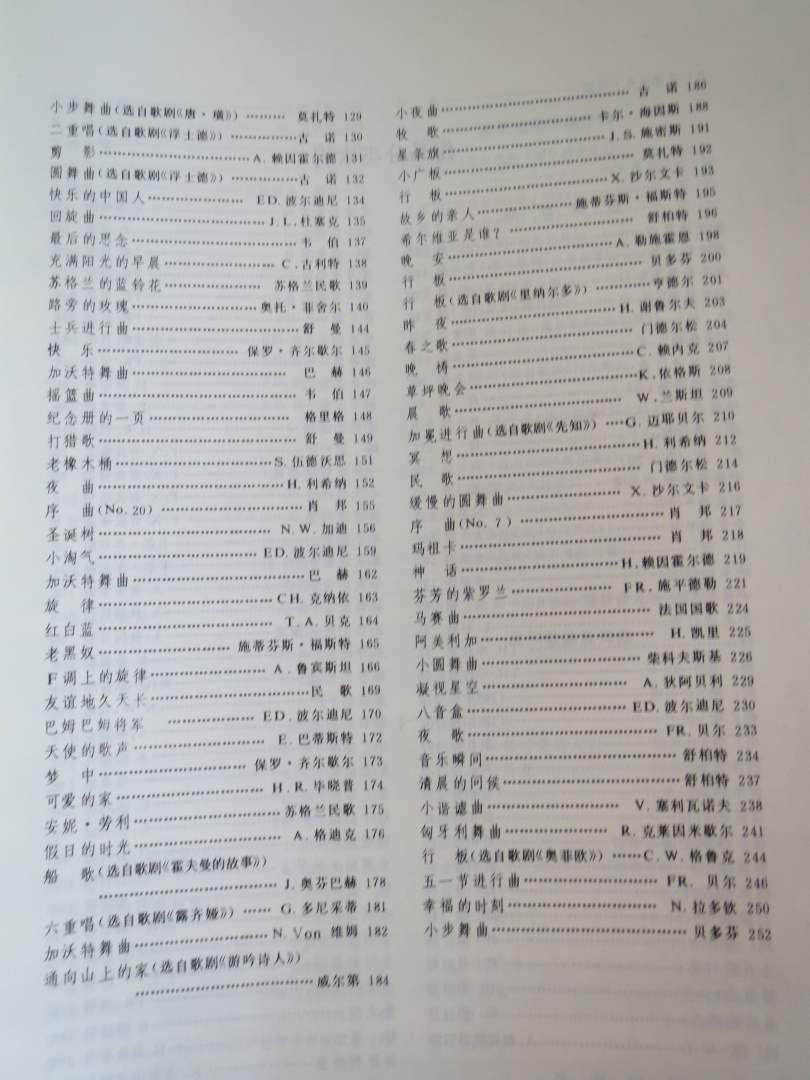 小步舞曲(选自歌剧《唐·璜》)……… 莫扎特 129
二重唱(选自歌剧《浮士德》)……………古 诺 130
剪 影……………………………A. 赖因霍尔德 131
圆舞曲(选自歌剧《浮士德》)……………古 诺 132
快乐的中国人…………………ED. 波尔迪尼 134
回旋曲………………………………J. L. 杜塞克 135
最后的思念……………………………韦 伯 137
充满阳光的早晨…………………C. 古利特 138
苏格兰的蓝铃花……………… 苏格兰民歌 139
路旁的玫瑰…………………奥托·菲舍尔 140
士兵进行曲……………………………舒 曼 144
快 乐…………………………保罗·齐尔歇尔 145
加沃特舞曲…………………………… 巴 赫 146
摇篮曲…………………………………韦 伯 147
纪念册的一页……………………… 格里格 148
打猎歌…………………………………舒 曼 149
老橡木桶………………………S. 伍德沃思 151
夜 曲………………………………H. 利希纳 152
序 曲(No. 20)………………………肖 邦 155
圣诞树……………………………N. W. 加迪 156
小淘气…………………………ED. 波尔迪尼 159
加沃特舞曲……………………………巴 赫 162
旋 律………………………………CH. 克纳依 163
红白蓝………………………………T. A. 贝克 164
老黑奴………………………施蒂芬斯·福斯特 165
F调上的旋律…………………A. 鲁宾斯坦 166
友谊地久天长……………………………民 歌 169
巴姆巴姆将军 ………………ED. 波尔迪尼 170
天使的歌声……………………E. 巴蒂斯特 172
梦 中…………………………保罗·齐尔歇尔 173
可爱的家………………………H. R. 毕晓普 174
安妮·劳利………………………苏格兰民歌 175
假日的时光…………………………A. 格迪克 176
船 歌(选自歌剧《霍夫曼的故事》)
………………………………J. 奥芬巴赫 178
六重唱(选自歌剧《露齐娅》)…… G. 多尼采蒂 181
加沃特舞曲……………………N. Von 维姆 182
通向山上的家(选自歌剧《游吟诗人》)
………………………………威尔第 184
小夜曲…………………………………古 诺 186
牧 歌…………………………卡尔·海因斯 188
星条旗……………………………J. S. 施密斯 191
小广板……………………………………莫扎特 192
行 板……………………………X. 沙尔文卡 193
故乡的亲人………………施蒂芬斯·福斯特 195
希尔维亚是谁?……………………… 舒柏特 196
晚 安……………………………A. 勒施霍恩 198
行 板……………………………………贝多芬 200
行 板(选自歌剧《里纳尔多》)…………亨德尔 201
昨 夜……………………………H. 谢鲁尔夫 203
春之歌………………………………门德尔松 204
晚 祷………………………………C. 赖内克 207
草坪晚会……………………………K. 依格斯 208
晨 歌………………………………W. 兰斯坦 209
加冕进行曲(选自歌剧《先知》)…G. 迈耶贝尔 210
冥 想………………………………H. 利希纳 212
民 歌…………………………………门德尔松 214
缓慢的圆舞曲…………………X. 沙尔文卡 216
序 曲(No. 7)…………………………肖 邦 217
玛祖卡……………………………………肖 邦 218
神 话…………………………H. 赖因霍尔德 219
芬芳的紫罗兰……………… FR. 施平德勒 221
马赛曲…………………………………法国国歌 224
阿美利加………………………………H. 凯里 225
小圆舞曲…………………………柴科夫斯基 226
凝视星空…………………………A. 狄阿贝利 229
八音盒…………………………ED. 波尔迪尼 230
夜 歌………………………………FR. 贝尔 233
音乐瞬间………………………………舒柏特 234
清晨的问候……………………………舒柏特 237
小谐谑曲……………………V. 塞利瓦诺夫 238
匈牙利舞曲…………………R. 克莱因米歇尔 241
行 板(选自歌剧《奥菲欧》)……C. W. 格鲁克 244
五一节进行曲………………………FR. 贝尔 246
幸福的时刻…………………………N. 拉多钦 250
小步舞曲………………………………贝多芬 252